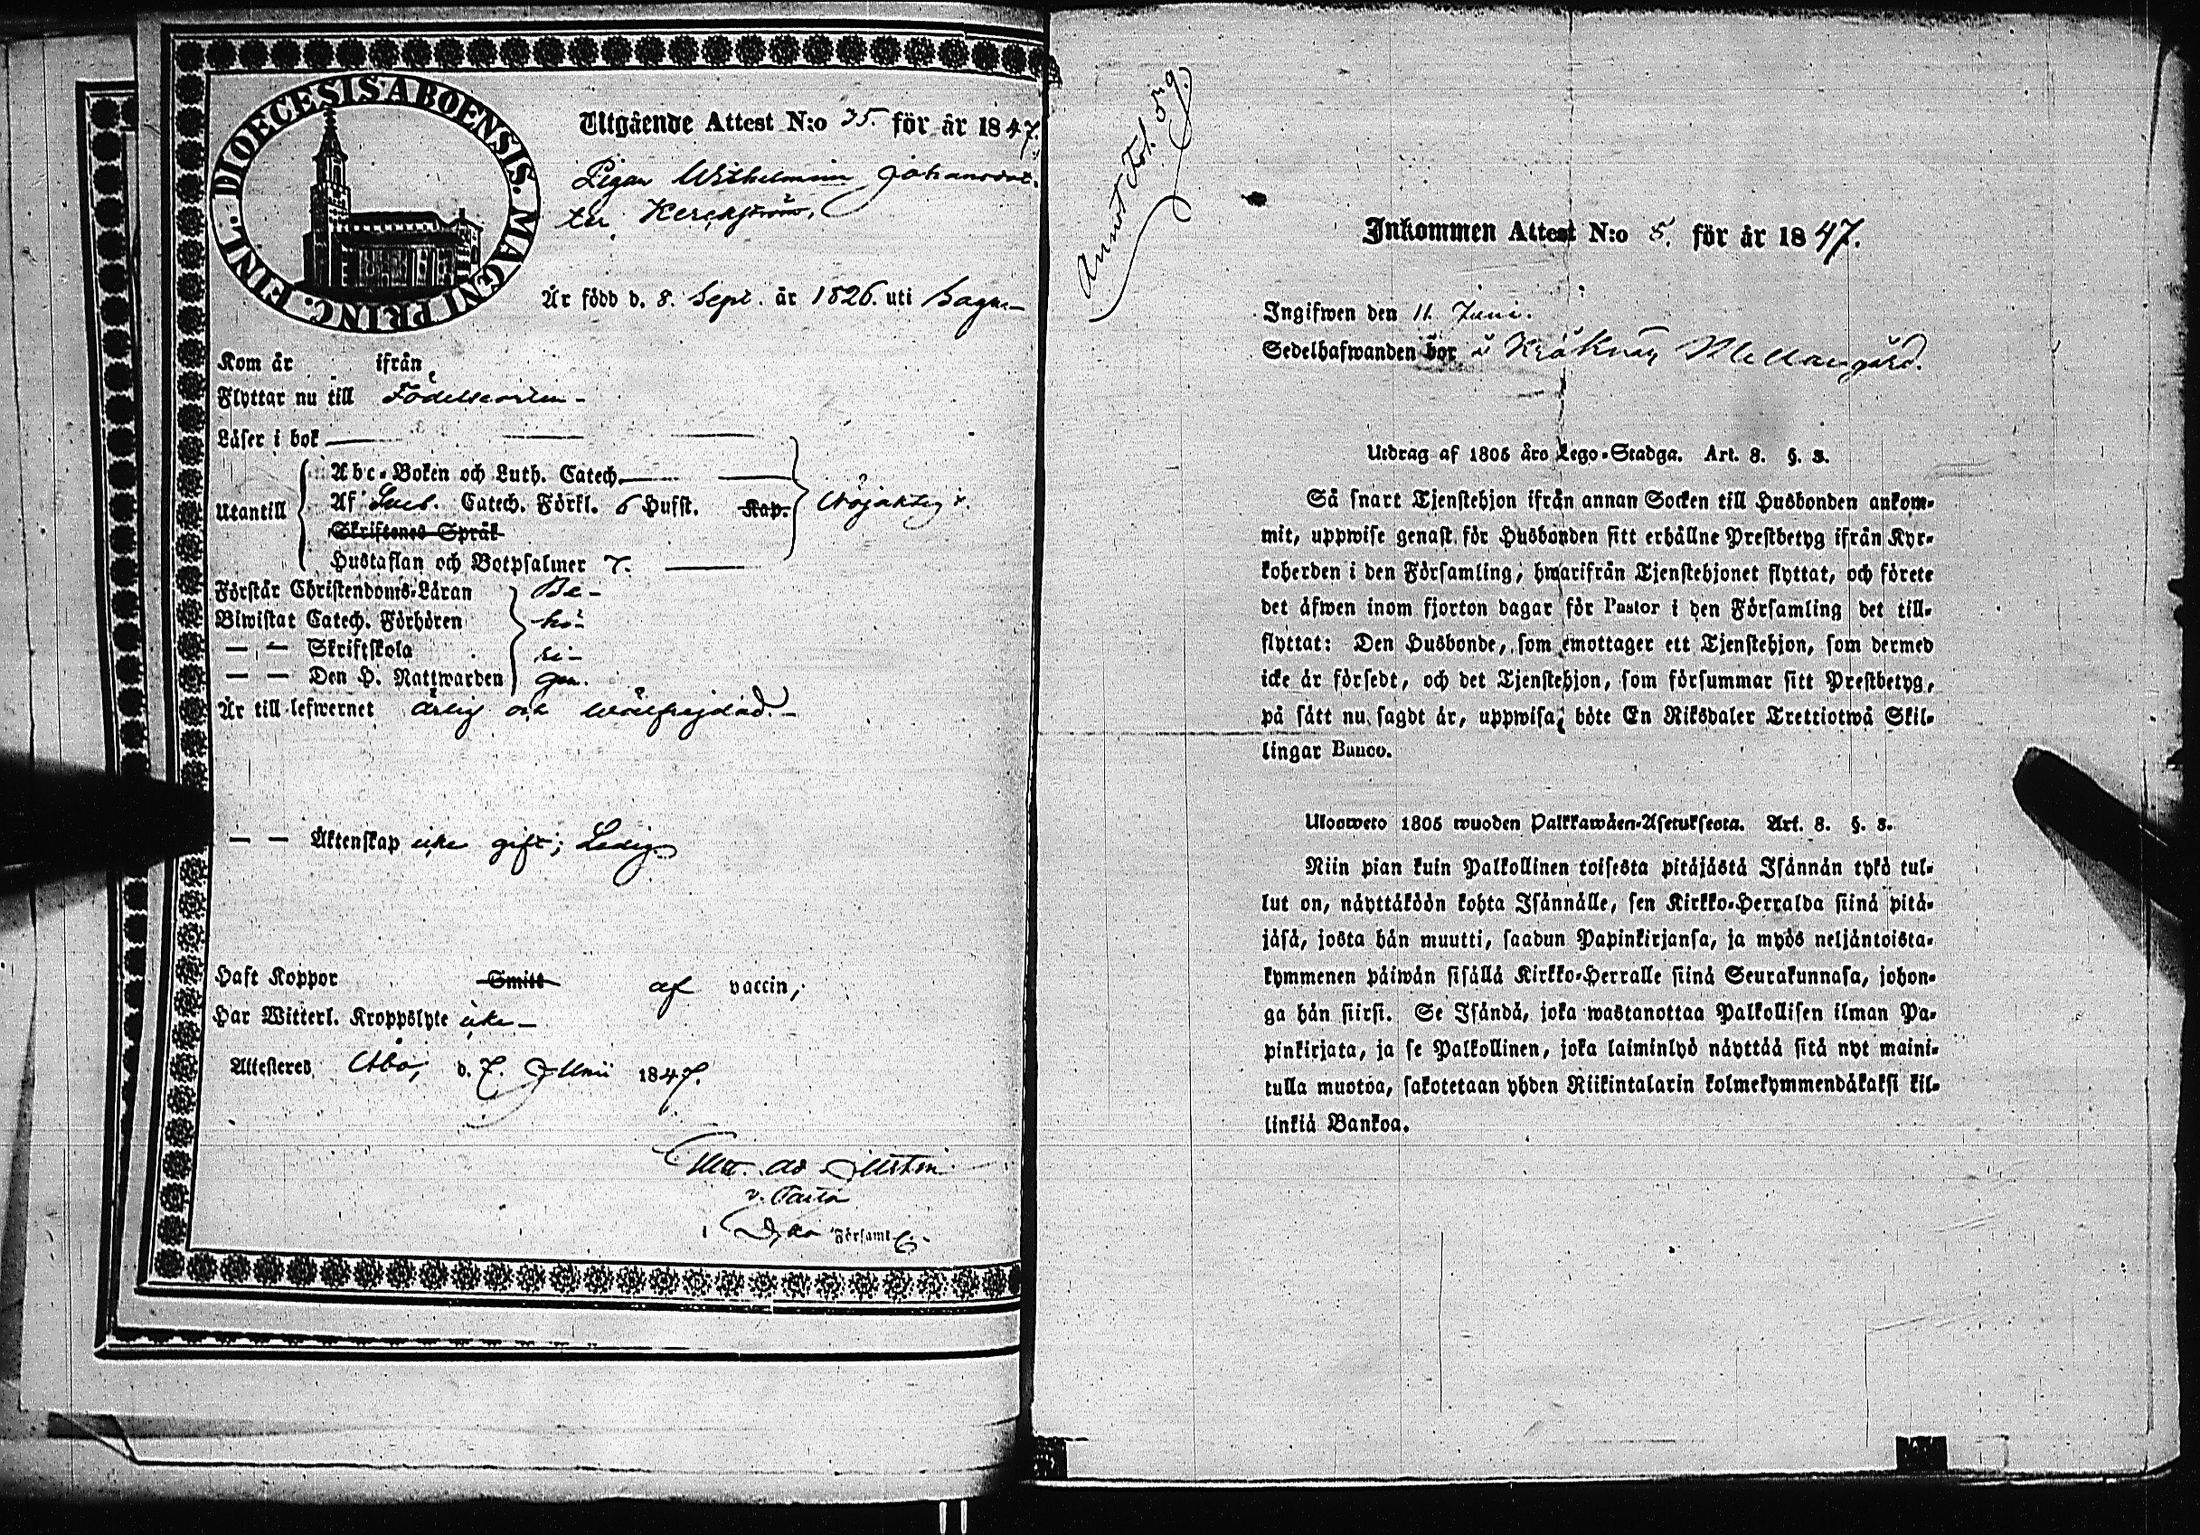 DIOECESIS ABOENSIS. MAGNI PRINC. FINL.
Utgående Attest N:o 35. för år 1847.
Pigan Wilhelmina Johansdot-
ter
Är född d. 8. Sept. år 1826. uti Sagu
Kom år ifrån
Flyttar nu till Födelseorten -
Läser i bok
Abc-Boken och Luth. Catech.
Utantill Af Catech. Förkl. 6 Hufst. Kap. Nöjaktigt.
Skriftenes Språk
Hustaflan och Botpsalmer 7.
Förstår Christendoms-Läran Be-
Biwistat Catech. Förhören hö-
— — Skriftskola ri-
— — Den H. Nattwarden gen.
Är till lefwernet ärlig och wälfrejdad. -
— — Äktenskap icke gift; Ledig
Haft Koppor Smitt af vaccin,
Har Witterl. Kroppslyte icke -
Attesteras Åbo, d. 7. Junii 1847.
v. Pastor
Församl.
Annot. Fol. 59.
Inkommen Attest N:o 8. för år 1847.
Ingifwen den 11. Juni.
Sedelhafwanden bor i Kråknäs Mellangård.
Utdrag af 1805 års Lego-Stadga. Art. 8. §. 3.
Så snart Tjenstehjon ifrån annan Socken till Husbonden ankom-
mit, uppwise genast för Husbonden sitt erhållne Prestbetyg ifrån Kyr-
koherden i den Församling, hwarifrån Tjenstehjonet flyttat, och förete
det äfwen inom fjorton dagar för Pastor i den Församling det till-
flyttat: Den Husbonde, som emottager ett Tjenstehjon, som dermed
icke är försedt, och det Tjenstehjon, som försummar sitt Prestbetyg,
på sätt nu sagdt är, uppwisa, böte En Riksdaler Trettiotwå Skil-
lingar Banco.
Ulosweto 1805 wuoden Palkkawäen-Asetuksesta. Art. 8. §. 3.
Niin pian kuin Palkollinen toisesta pitäjästä Isännän tykö tul-
lut on, näyttäköön kohta Isännälle, sen Kirkko-Herralda siinä pitä-
jäsä, josta hän muutti, saadun Papinkirjansa, ja myös neljäntoista-
kymmenen päiwän sisällä Kirkko-Herralle siinä Seurakunnasa, johon-
ga hän siirsi. Se Isändä, joka wastanottaa Palkollisen ilman Pa-
pinkirjata, ja se Palkollinen, joka laiminlyö näyttää sitä nyt maini-
tulla muotoa, sakotetaan yhden Riikintalarin kolmekymmendäkaksi kil-
linkiä Bankoa.